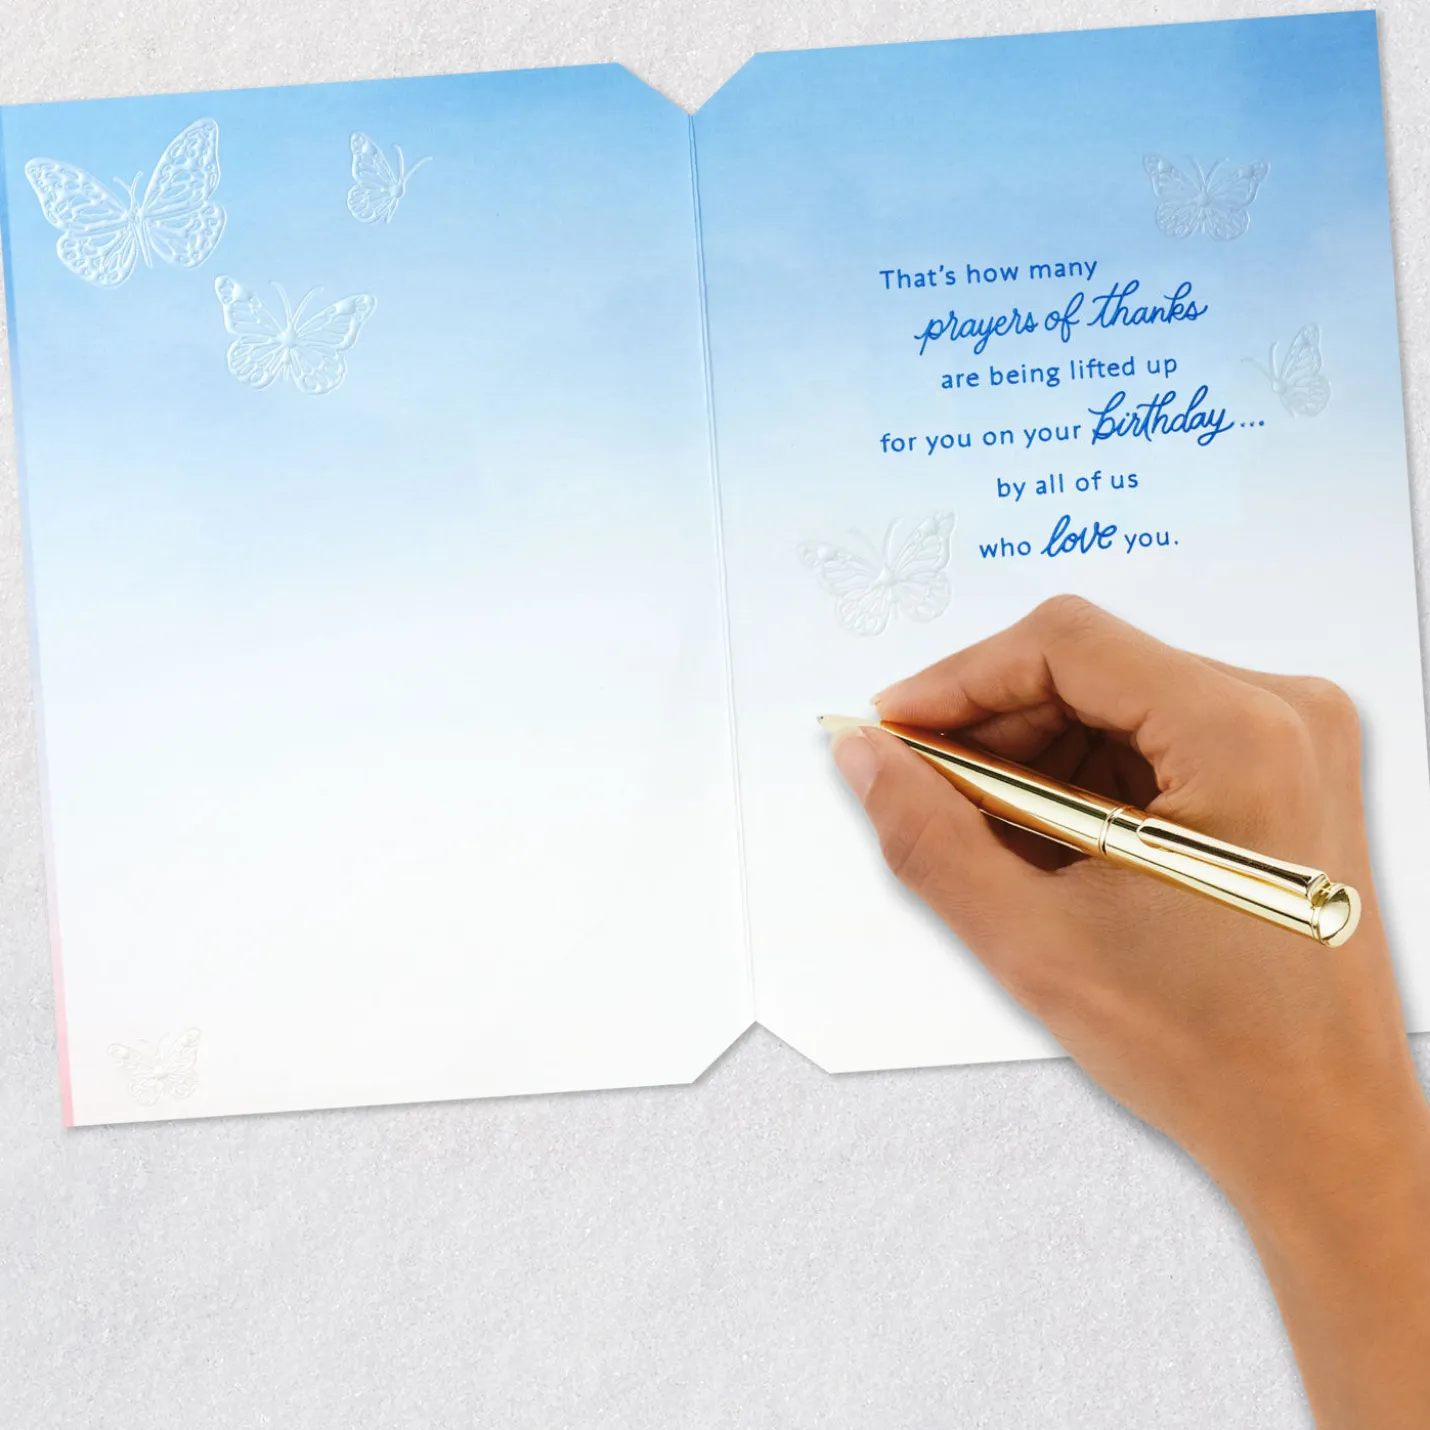 That's how many
prayers of thanks
are being lifted up
for you on your birthday...
by all of us
who love you.